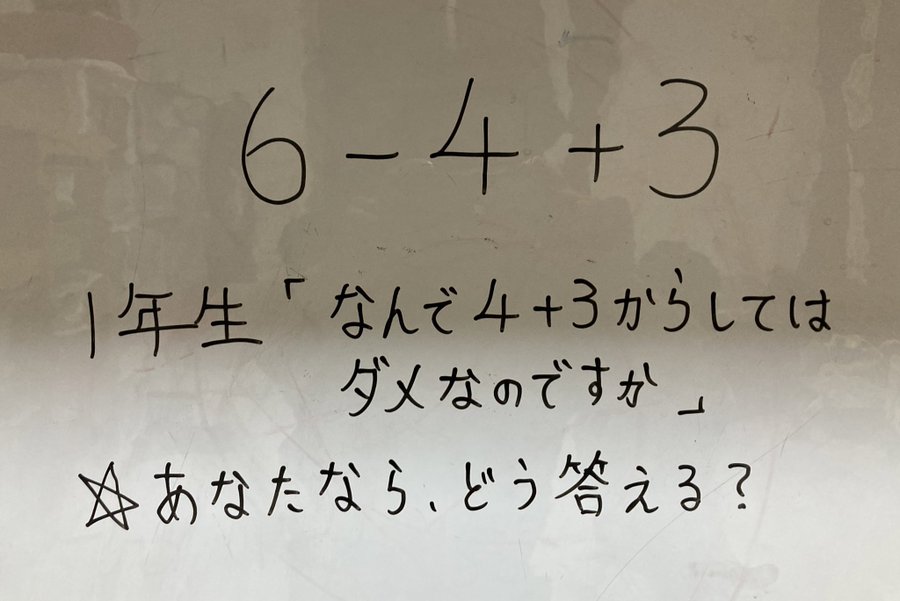 6-4+3
1年生「なんで4+3からしては
ダメなのですか」
☆あなたなら、どう答える？